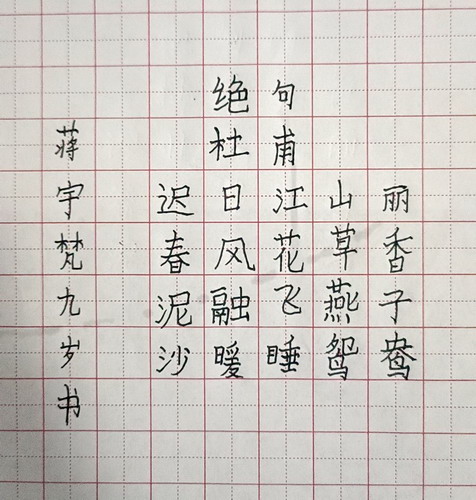 绝句
杜甫
迟日江山丽
春风花草香
泥融飞燕子
沙暖睡鸳鸯
蒋宇梵九岁书